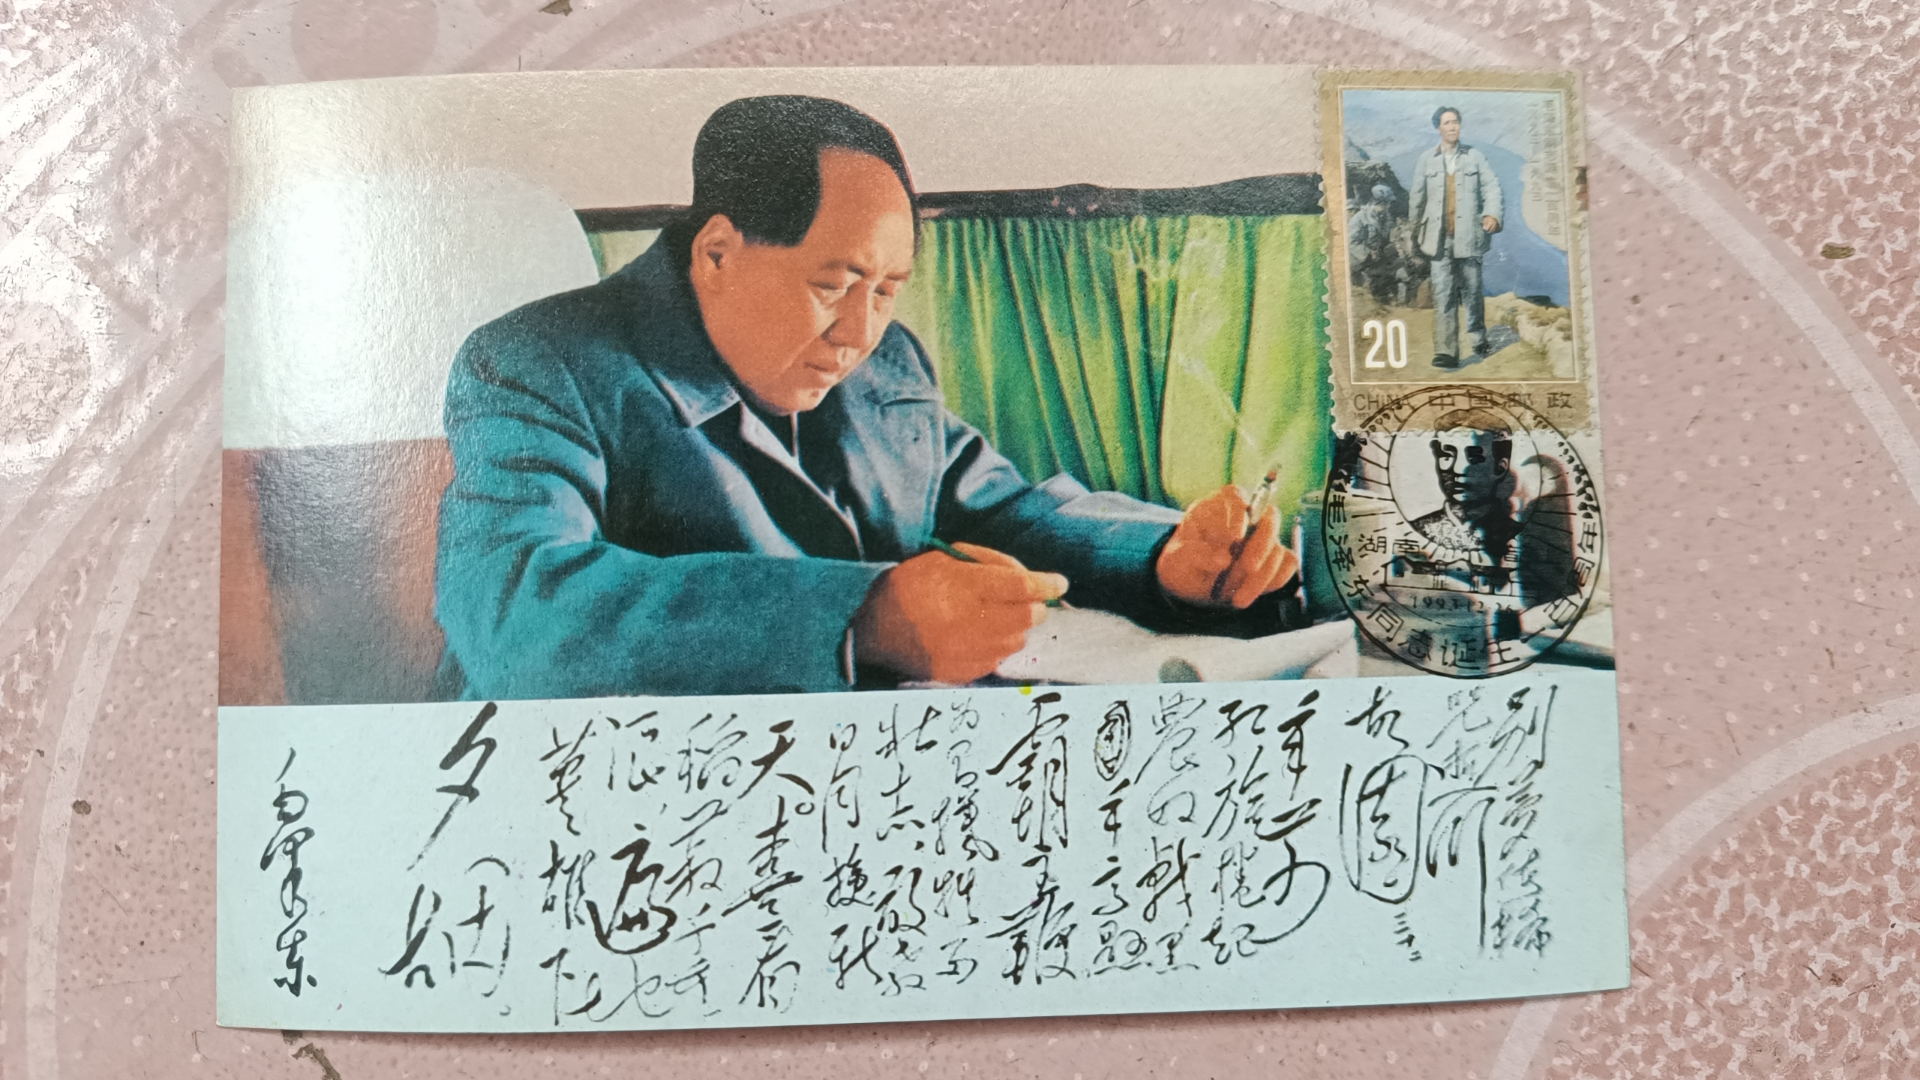 20
CHINA 中国邮政
毛泽东同志诞生一百周年
湖南
1993.12.26
别梦依稀
咒逝川
故园三十二
年前
红旗捲起
農奴戟黑
手高悬
霸朝主鞭
为有犠牲多
壮志,敢教
日月换新
天。喜看
稻菽千重
浪,遍地
英雄下
夕烟。
毛泽东